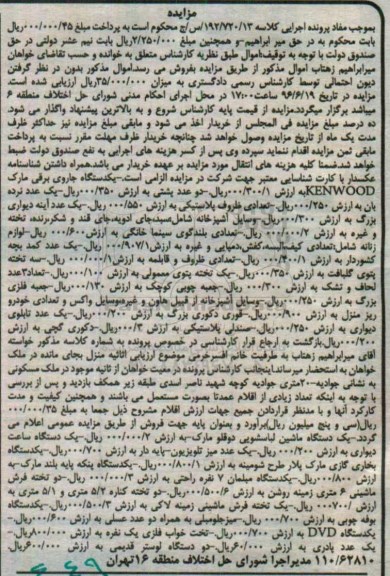 مزایده
بموجب مفاد پرونده اجرایی کلاسه ۱۹۲/۷۲۰/۱۳/س/ح محکوم است به پرداخت مبلغ ۰۰۰/۰۰۰/۴۵ریال
بابت محکوم به در حق میر ابراهیم-و همچنین مبلغ ۲/۲۵۰/۰۰۰ریال بابت نیم عشر دولتی در حق
صندوق دولت با توجه به توقیف؛اموال طبق نظریه کارشناس متعلق به خوانده و حسب تقاضای خواهان
میرابراهیم زهتاب اموال مذکور از طریق مزایده بفروش می رسد.اموال مذکور بدون در نظر گرفتن
دیون احتمالی توسط کارشناس رسمی دادگستری به میزان ۳۵/۰۰۰/۰۰۰ریال ارزیابی شده است
مزایده در تاریخ ۹۶/۶/۱۹ ساعت ۱۲:۰۰ در محل اجرای احکام مدنی شورای حل اختلاف منطقه ۶
میباشد برگزار میگردد.مزایده از قیمت پایه کارشناس شروع و به بالاترین پیشنهاد واگذار می شود.
ده درصد مبلغ مزایده فی المجلس از خریدار اخذ می شود و مابقی مبلغ مزایده نیز حداکثر ظرف
مدت یک ماه از تاریخ مزایده وصول خواهد شد چنانچه خریدار ظرف مهلت مقرر نسبت به پرداخت
مابقی ثمن مزایده اقدام ننماید سپرده وی پس از کسر هزینه های اجرایی به نفع صندوق دولت ضبط
خواهد شد.ضمنا کلیه هزینه های انتقال مورد مزایده بر عهده خریدار می باشد.همراه داشتن شناسنامه
عکسدار یا کارت شناسایی معتبر جهت شرکت در مزایده الزامی است.-یکدستگاه جاروی برقی مارک
KENWOODبه ارزش ۱/۳۰۰/۰۰۰ریال-دو عدد پشتی به ارزش ۳۵۰/۰۰۰ریال-یک عدد نرده
بان به ارزش ۲۵۰/۰۰۰ریال-تعدادی ظروف پلاستیکی به ارزش ۵۵۰/۰۰۰ ریال-یک عدد آینه دیواری
بزرگ به ارزش ۳۰۰/۰۰۰ریال-وسایل آشپزخانه شامل:سبد،جای ادویه،جای قند و شکر،رنده، تخته
و غیره به ارزش ۲/۰۰۰/۰۰۰ ریال-تعدادی بلندگوی سینما خانگی به ارزش ۶۰۰/۰۰۰ریال-لوازم
زنانه شامل:تعدادی کیف،البسه،کفش،دمپایی و غیره به ارزش ۹۰۷/۱/۰۰۰ریال-یک عدد کمد بچه
کشودار به ارزش ۴۰۰/۱/۰۰۰ریال-تعدادی ظروف و قابلمه به ارزش۱/۰۰۰/۰۰۰ریال-سه تخته
پتوی گلبافت به ارزش ۳۵۰/۰۰۰ ریال-یک تخته پتوی معمولی به ارزش ۱۰۰/۰۰۰ریال-تعداد۳عدد
لحاف و تشک به ارزش ۳۰۰/۰۰۰ریال-جعبه چوبی کوچک به ارزش ۱۳۰/۰۰۰ریال-جعبه فلزی
بزرگ به ارزش ۲۵۰/۰۰۰ریال-وسایل آشپزخانه از قبیل هاون و غیره-وسایل واکس و تعدادی خودرو
ریز منزل به ارزش ۹۰۰/۰۰۰ریال-قوری دکوری بزرگ به ارزش ۲۰۰/۰۰۰ریال-یک عدد تابلوی
دیواری به ارزش ۲۵۰/۰۰۰ریال-صندلی پلاستیکی به ارزش ۳/۰۰۰/۰۰۰ ریال-دکوری گچی به ارزش
۲۰۰/۰۰۰ریال.بازگشت به ارجاع قرار کارشناسی در خصوص پرونده به شماره کلاسه مذکور خواسته
آقای میرابراهیم زهتاب به طرفیت خانم افسرخرمی موضوع ارزیابی اثاثیه منزل بجای مانده در ملک
خواهان به استحضار میرساند.اینجانب کارشناس پرونده در معیت خواهان از اثاثیه موجود در ملک مسکونی
به نشانی جوادیه-۲۰متری جوادیه کوچه شهید ناصر اسدی طبقه زیر همکف بازدید و پس از بررسی
با توجه به اینکه تعداد زیادی از اقلام عمدتا بصورت مستعمل می باشند و همچنین کیفیت و مدت
کارکرد آنها و با مدنظر قراردادن جمیع جهات ارزش اقلام مشروح ذیل جمعا به مبلغ ۳۵/۰۰۰/۰۰۰
ریال(سی و پنج میلیون ریال)برآورد و بعنوان پایه جهت فروش از طریق مزایده عمومی اعلام می
گردد.-یک دستگاه ماشین لباسشویی دوقلو مارک-به ارزش ۲/۰۰۰/۰۰۰ریال-یک دستگاه ساعت
دیواری به ارزش ۲۰۰/۰۰۰ ریال-یک عدد میز تلویزیون-پایه دار به ارزش ۷۰۰/۰۰۰ریال-یکدستگاه
بخاری گازی مارک پلار طرح شومینه به ارزش ۱/۸۰۰/۰۰۰ریال-یکدستگاه پنکه پایه بلند مارک-به
ارزش ۸۰۰/۰۰۰ریال-یکدستگاه مبلمان ۷ نفره راحتی به ارزش ۳/۰۰۰/۰۰۰ ریال-دو تخته فرش
ماشینی ۶ متری زمینه روشن به ارزش ۵۰۰/۶/۰۰۰ریال-دو تخته کناره ۵/۲ متری و ۵/۱ متری به
ارزش ۷۰۰/۰۰۰ریال-یک تخته فرش ماشینی زمینه لاکی به ارزش ۵۰۰/۳/۰۰۰ریال-یکدستگاه
بوفه چوبی به ارزش ۷۰۰/۰۰۰ریال-میزجلومبلی به همراه دو عدد عسلی به ارزش ۶۰۰/۰۰۰ریال-
یکدستگاه DVD به ارزش ۷۰۰/۰۰۰ریال-تخت خواب فلزی یک نفره به ارزش ۸۰۰/۰۰۰ریال-
یک عدد پادری به ارزش ۶۰/۰۰۰ریال-دو دستگاه لوستر قدیمی به ارزش ۶۰۰/۰۰۰ریال.
۱۱۰/۶۲۸۱۰ مدیراجرا شورای حل اختلاف منطقه ۱۶تهران